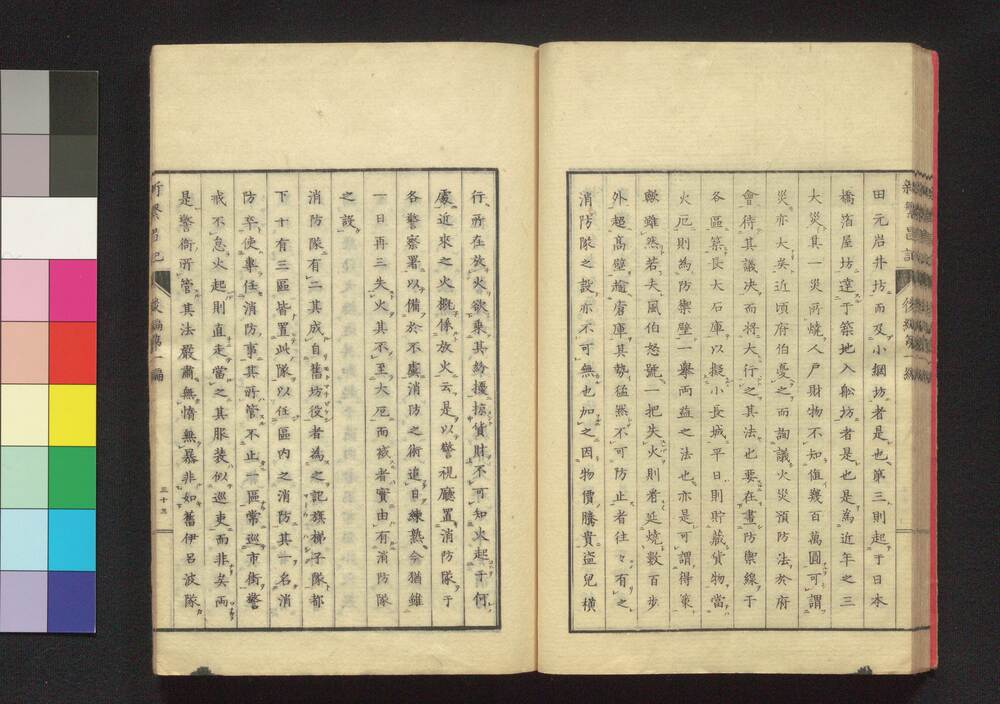 田元岩井坊而及小網坊者是也第三則起于日本
橋箔屋坊達于築地入舩坊者是也是為近年之三
大災其一災所燒人戶財物不知値幾百萬圓可謂
災亦大矣近頃府伯憂之而詢議火災預防法於府
會待其議决而將大行之其法也要在畫防禦線于
各區築長大石庫以擬小長城平日則貯藏貨物當
火厄則為防禦壁一舉兩益之法也亦是可謂得策
歟雖然若夫風伯怒號一把失火則者延燒數百步
外超高壁踰唐庫其勢猛烈不可防止者往々有之
消防隊之設亦不可無也加之因物價騰貴盜兒橫
行所在放火欲乘其紛擾掠貨財不可知火起于何
處近來之火概係放火云是以警視廳置消防隊于
各警察署以備於不虞消防之術追日練熟今猶雖
一日再三失火其不至大厄而滅者實由有消防隊
之設
消防隊有二其成自舊坊役者為之記旗梯子隊都
下十有三區皆置此隊以任區內之消防其一名消
防卒使專任消防事其所管不止一區常巡市街警
戒不怠火起則直走當之其服裝似巡吏而非矣兩
是警衙所管其法嚴肅無惰無暴非如舊伊呂波隊
新繁昌記 後編第一編
三十三